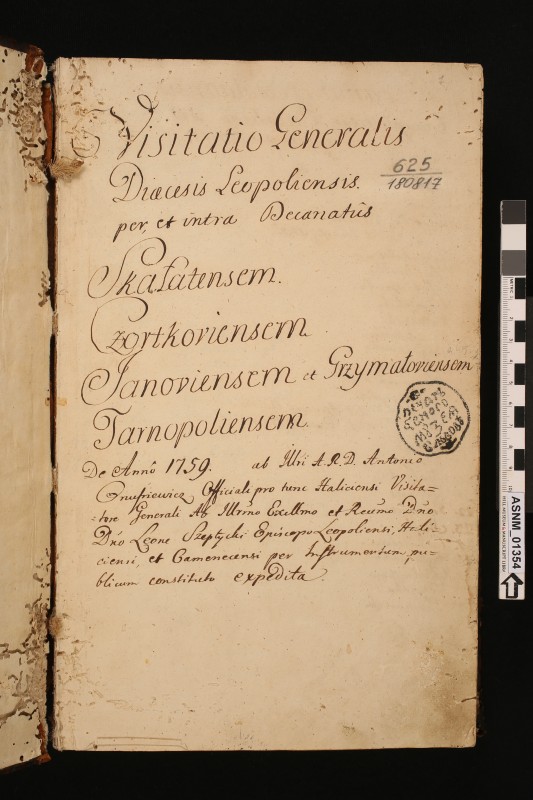 Visitatio Generalis
625
180817
Diæcesis Leopoliensis.
per, et intra Decanatûs
Skałatensem.
Czortkoviensem
Janoviensem et Grzymałoviensem
Tarnopoliensem
De Annô 1759. ab Illri A.R.D. Antonio
Onufriewicz Officiali pro tunc Haliciensi Visita-
-tore Generali Ab Illrmo Excllmo et Reũmo Dño
Dño Leone Szeptycki Episcopo Leopoliensi, Hali-
ciensi, et Camenecensi per Instrumentum pu-
blicum constituto expedita.
ASNM_01354